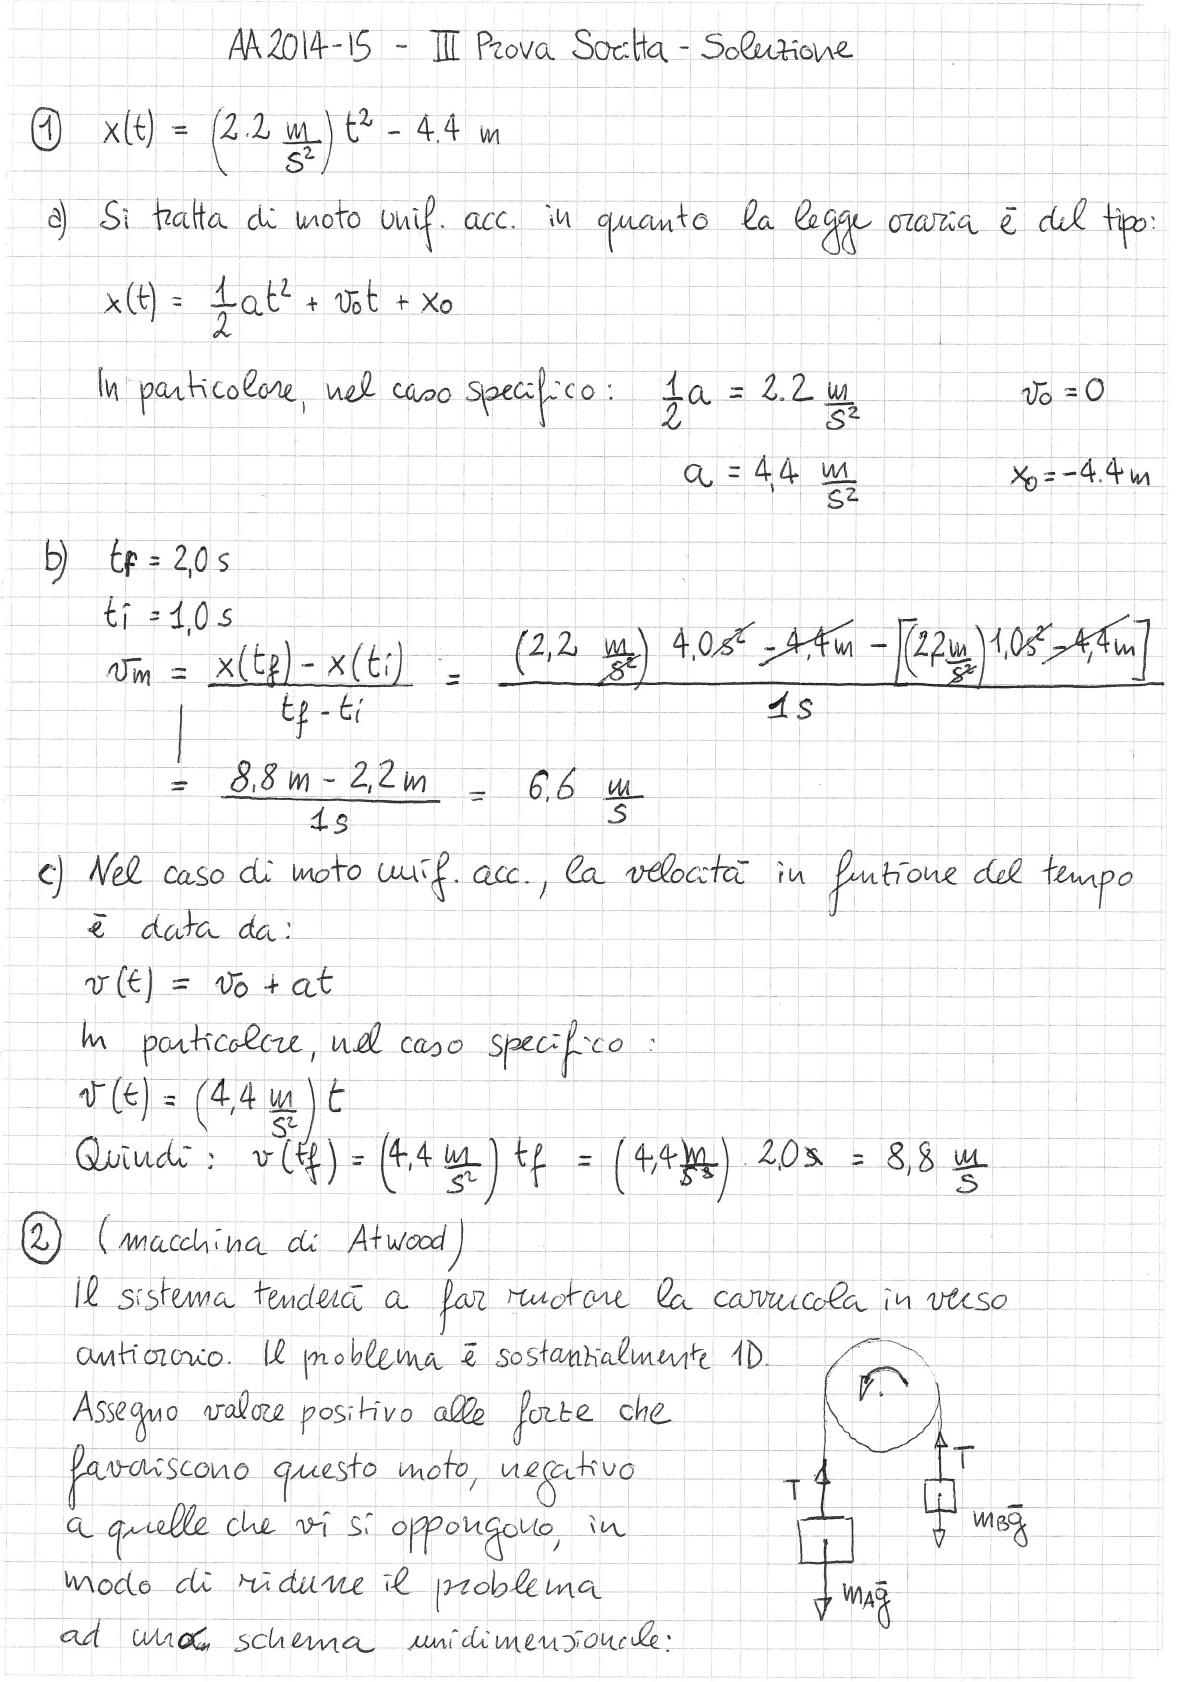 AA 2014-15 - III Prova Scritta - Soluzione
① x(t) = (2.2 m/s²) t² - 4.4 m
a) Si tratta di moto unif. acc. in quanto la legge oraria è del tipo:
x(t) = 1/2 at² + v₀t + x₀
In particolare, nel caso specifico: 1/2 a = 2.2 m/s² v₀ = 0
a = 4,4 m/s² x₀ = -4.4 m
b) tf = 2,0 s
ti = 1,0 s
vm = (x(tf) - x(ti))/(tf - ti) = ((2,2 m/s²) 4,0 s² - 4,4 m - [(2,2 m/s²) 1,0 s² - 4,4 m])/1 s
= (8,8 m - 2,2 m)/1 s = 6,6 m/s
c) Nel caso di moto unif. acc., la velocità in funzione del tempo
è data da:
v(t) = v₀ + at
In particolare, nel caso specifico:
v(t) = (4,4 m/s²) t
Quindi: v(tf) = (4,4 m/s²) tf = (4,4 m/s²) · 2,0 s = 8,8 m/s
② (macchina di Atwood)
Il sistema tenderà a far ruotare la carrucola in verso
antiorario. Il problema è sostanzialmente 1D.
Assegno valore positivo alle forze che
favoriscono questo moto, negativo
a quelle che vi si oppongono, in
modo di ridurre il problema
ad uno schema unidimensionale:
T
T
mB g̅
mA g̅